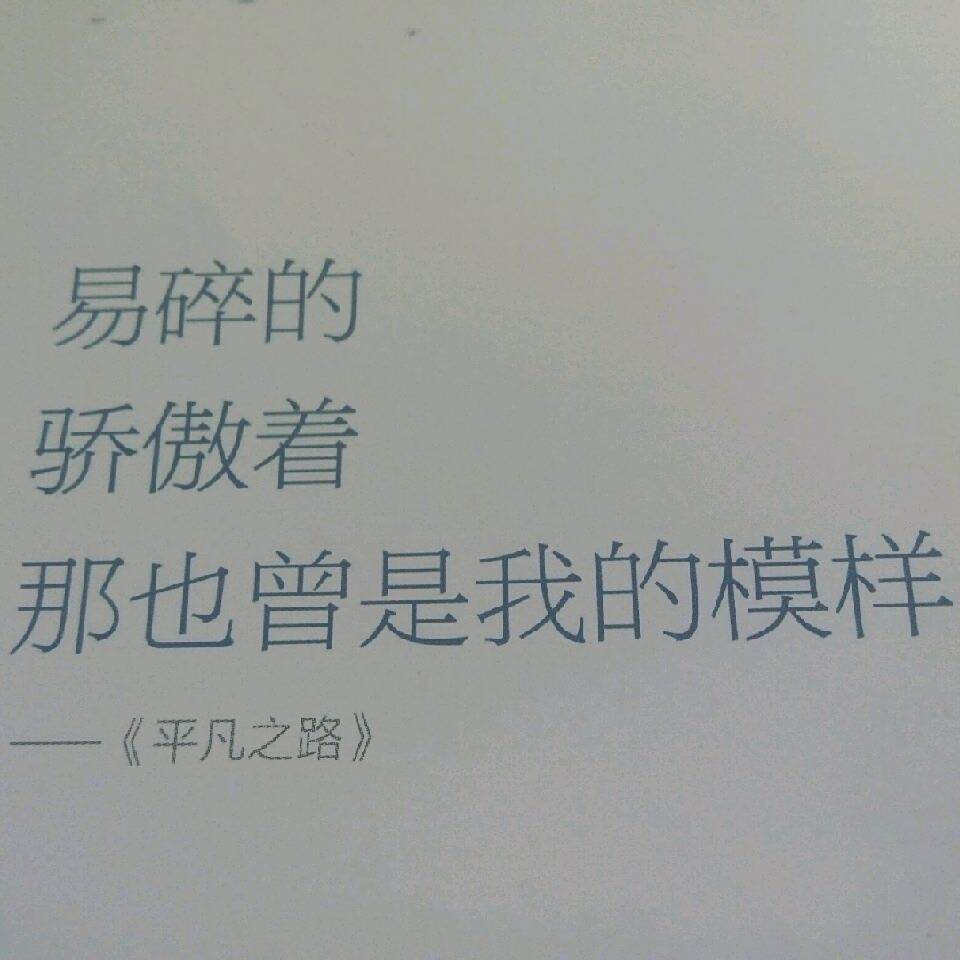 易碎的
骄傲着
那也曾是我的模样
——《平凡之路》